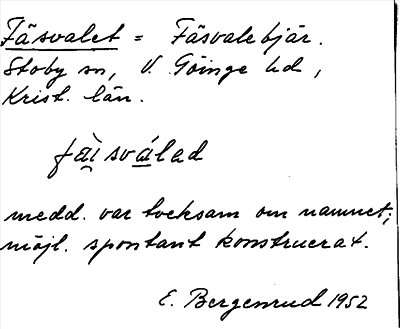 Fäsvalet = Fäsvalebjär.
Stoby sn, V. Göinge hd,
Krist. län.
fa̤i̯sválad
medd. var tveksam om namnet;
möjl. spontant konstruerat.
E. Bergenrud 1952